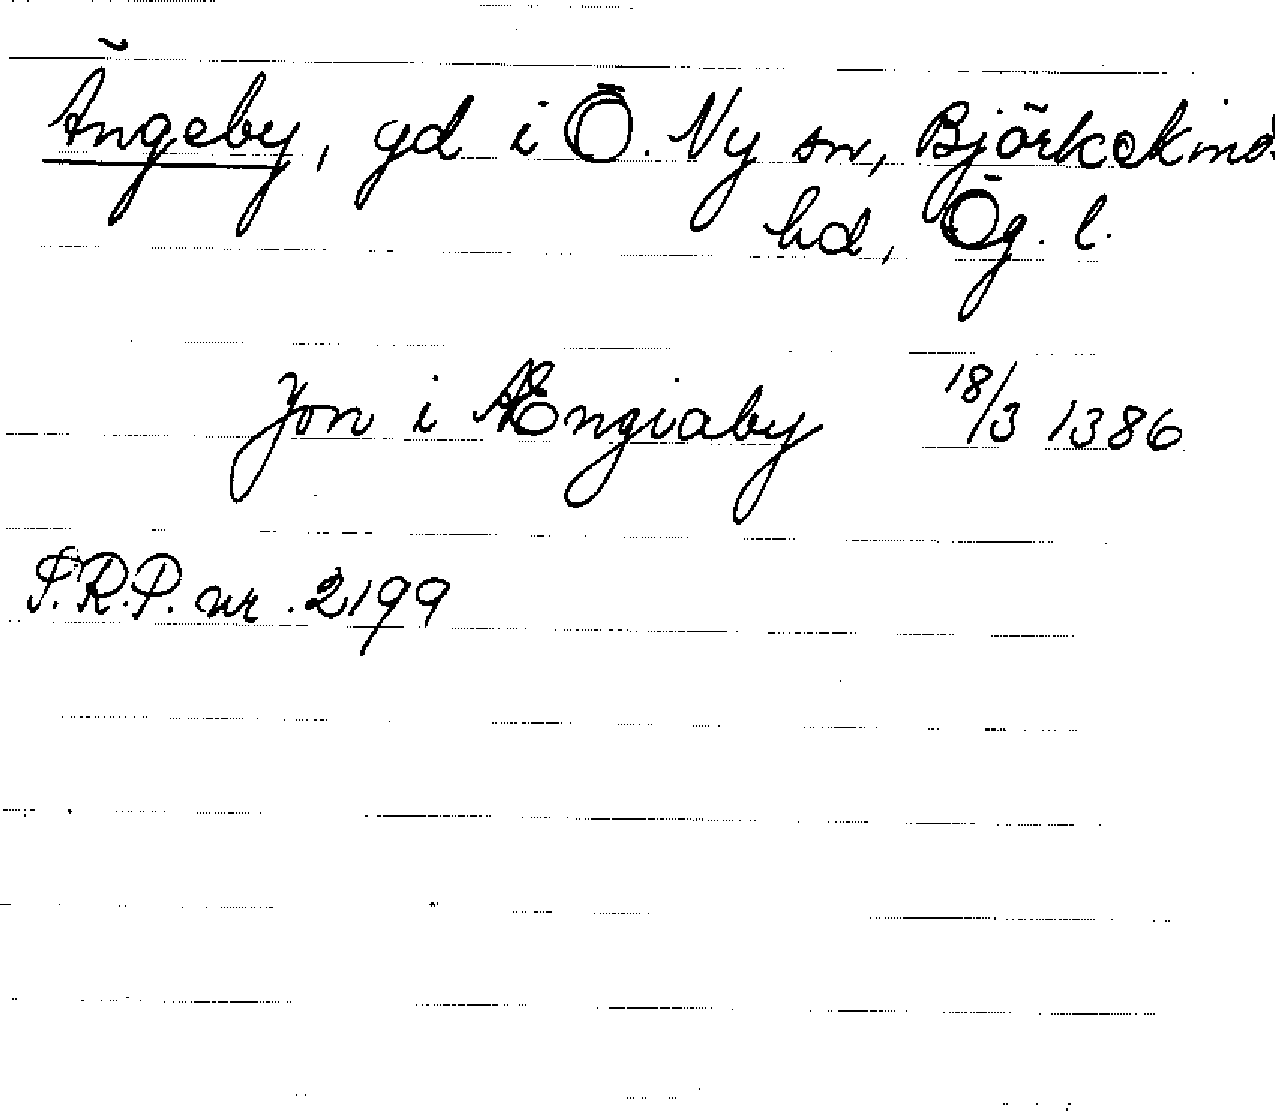 Ängeby, gd i Ö. Ny sn, Björkekinds
hd, Ög. l.
Jon i Ængiaby 18/3 1386
S.R.P. nr. 2199